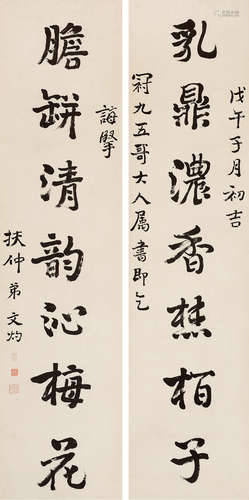 戊午子月初吉
乳鼎濃香焚柏子
冠九五哥大人属書即乞
誨擎
膽缾清韵沁梅花
扶仲弟文灼